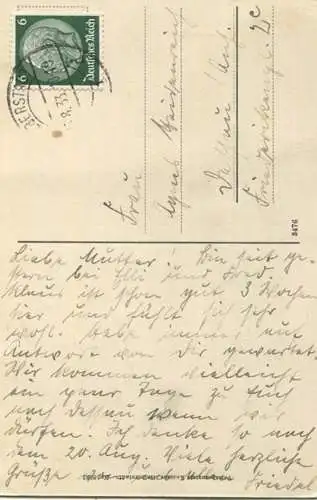 6
Deutsches Reich
6
Frau
Agnes
Dessau / Anh.
3476
Liebe Mutter! Bin seit ge-
stern bei Elli und Fred.
Klaus ist schon gut 3 Wochen
hier und fühlt sich sehr
wohl. Habe immer auf
Antwort von Dir gewartet.
Wir kommen vielleicht
ein paar Tage zu Euch
nach Dessau wenn wir
dürfen. Ich denke so nach
dem 20. Aug. Viele herzliche
Grüße Friedel